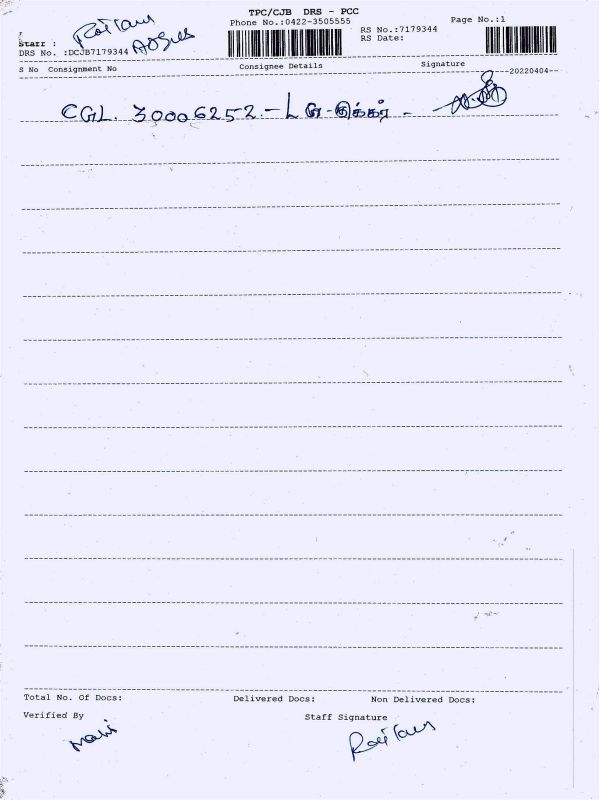 TPC/CJB DRS - PCC
Phone No.:0422-3505555
Page No.:1
RS No.:7179344
RS Date:
Staff :
DRS No. :DCJB7179344
S No Consignment No Consignee Details Signature
20220404
CGL. 30006252 -
Total No. Of Docs: Delivered Docs: Non Delivered Docs:
Verified By Staff Signature
mani